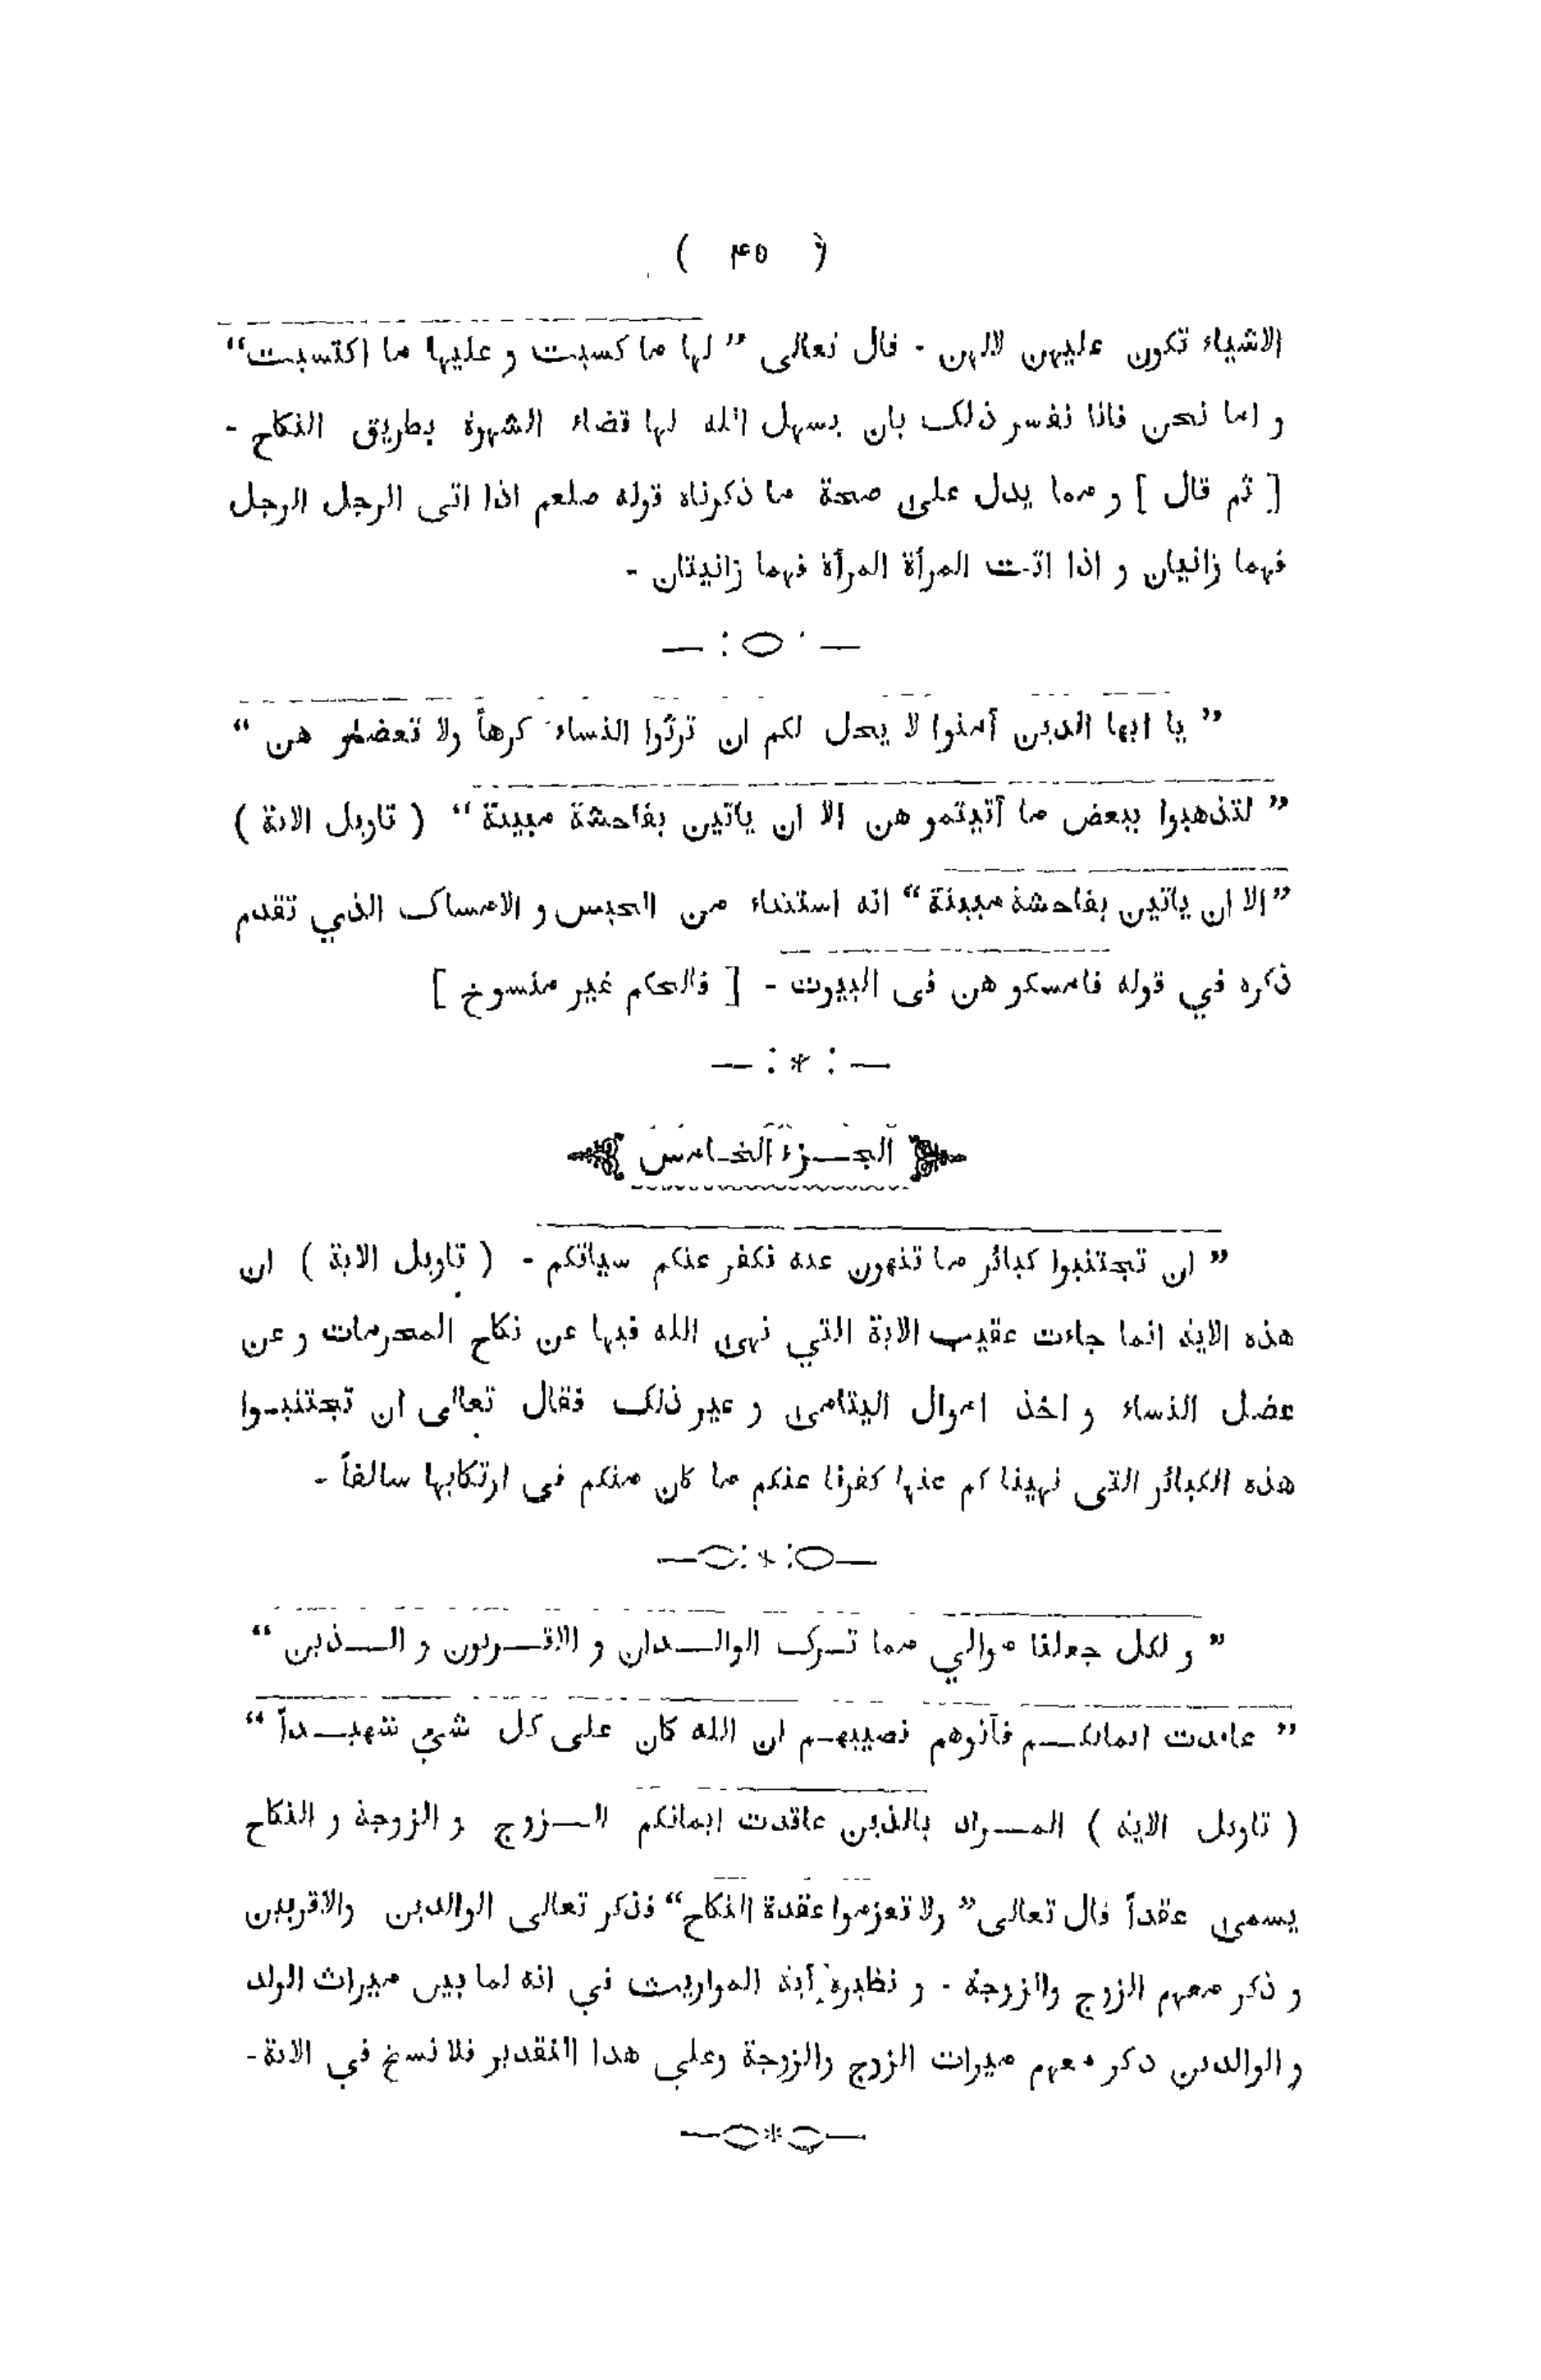 ( ۴۵ )
الاشياء تكون عليهن لالهن - قال تعالى ” لها ما كسبت و عليها ما اكتسبت“
و اما نحن فانا نفسر ذلك بان يسهل الله لها قضاء الشهوة بطريق النكاح -
[ ثم قال ] و مما يدل على صحة ما ذكرناه قوله صلعم اذا اتى الرجل الرجل
فهما زانيان و اذا اتت المرأة المرأة فهما زانيتان -
” يا ايها الذين آمنوا لا يحل لكم ان ترثوا النساء كرهاً ولا تعضلو هن “
” لتذهبوا ببعض ما آتيتمو هن الا ان ياتين بفاحشة مبينة “ ( تاويل الاية )
”الا ان ياتين بفاحشة مبينة“ انه استثناء من الحبس و الامساك الذي تقدم
ذكره في قوله فامسكو هن فى البيوت - [ فالحكم غير منسوخ ]
الجزء الخامس
” ان تجتنبوا كبائر ما تنهون عنه نكفر عنكم سياتكم - ( تاويل الاية ) ان
هذه الاية انما جاءت عقيب الاية التي نهى الله فيها عن نكاح المحرمات و عن
عضل النساء و اخذ اموال اليتامى و غير ذلك فقال تعالى ان تجتنبوا
هذه الكبائر التى نهينا كم عنها كفرنا عنكم ما كان منكم فى ارتكابها سالفاً -
” و لكل جعلنا موالي مما ترك الوالدان و الاقربون و الذين “
” عاقدت ايمانكم فآتوهم نصيبهم ان الله كان على كل شي شهيداً “
( تاويل الاية ) المراد بالذين عاقدت ايمانكم الزوج و الزوجة و النكاح
يسمى عقداً قال تعالى” ولا تعزموا عقدة النكاح“ فذكر تعالى الوالدين والاقربين
و ذكر معهم الزوج والزوجة - و نظيره آية المواريث في انه لما بين ميراث الولد
و الوالدين ذكر معهم ميراث الزوج والزوجة وعلى هذا التقدير فلا نسخ في الاية -